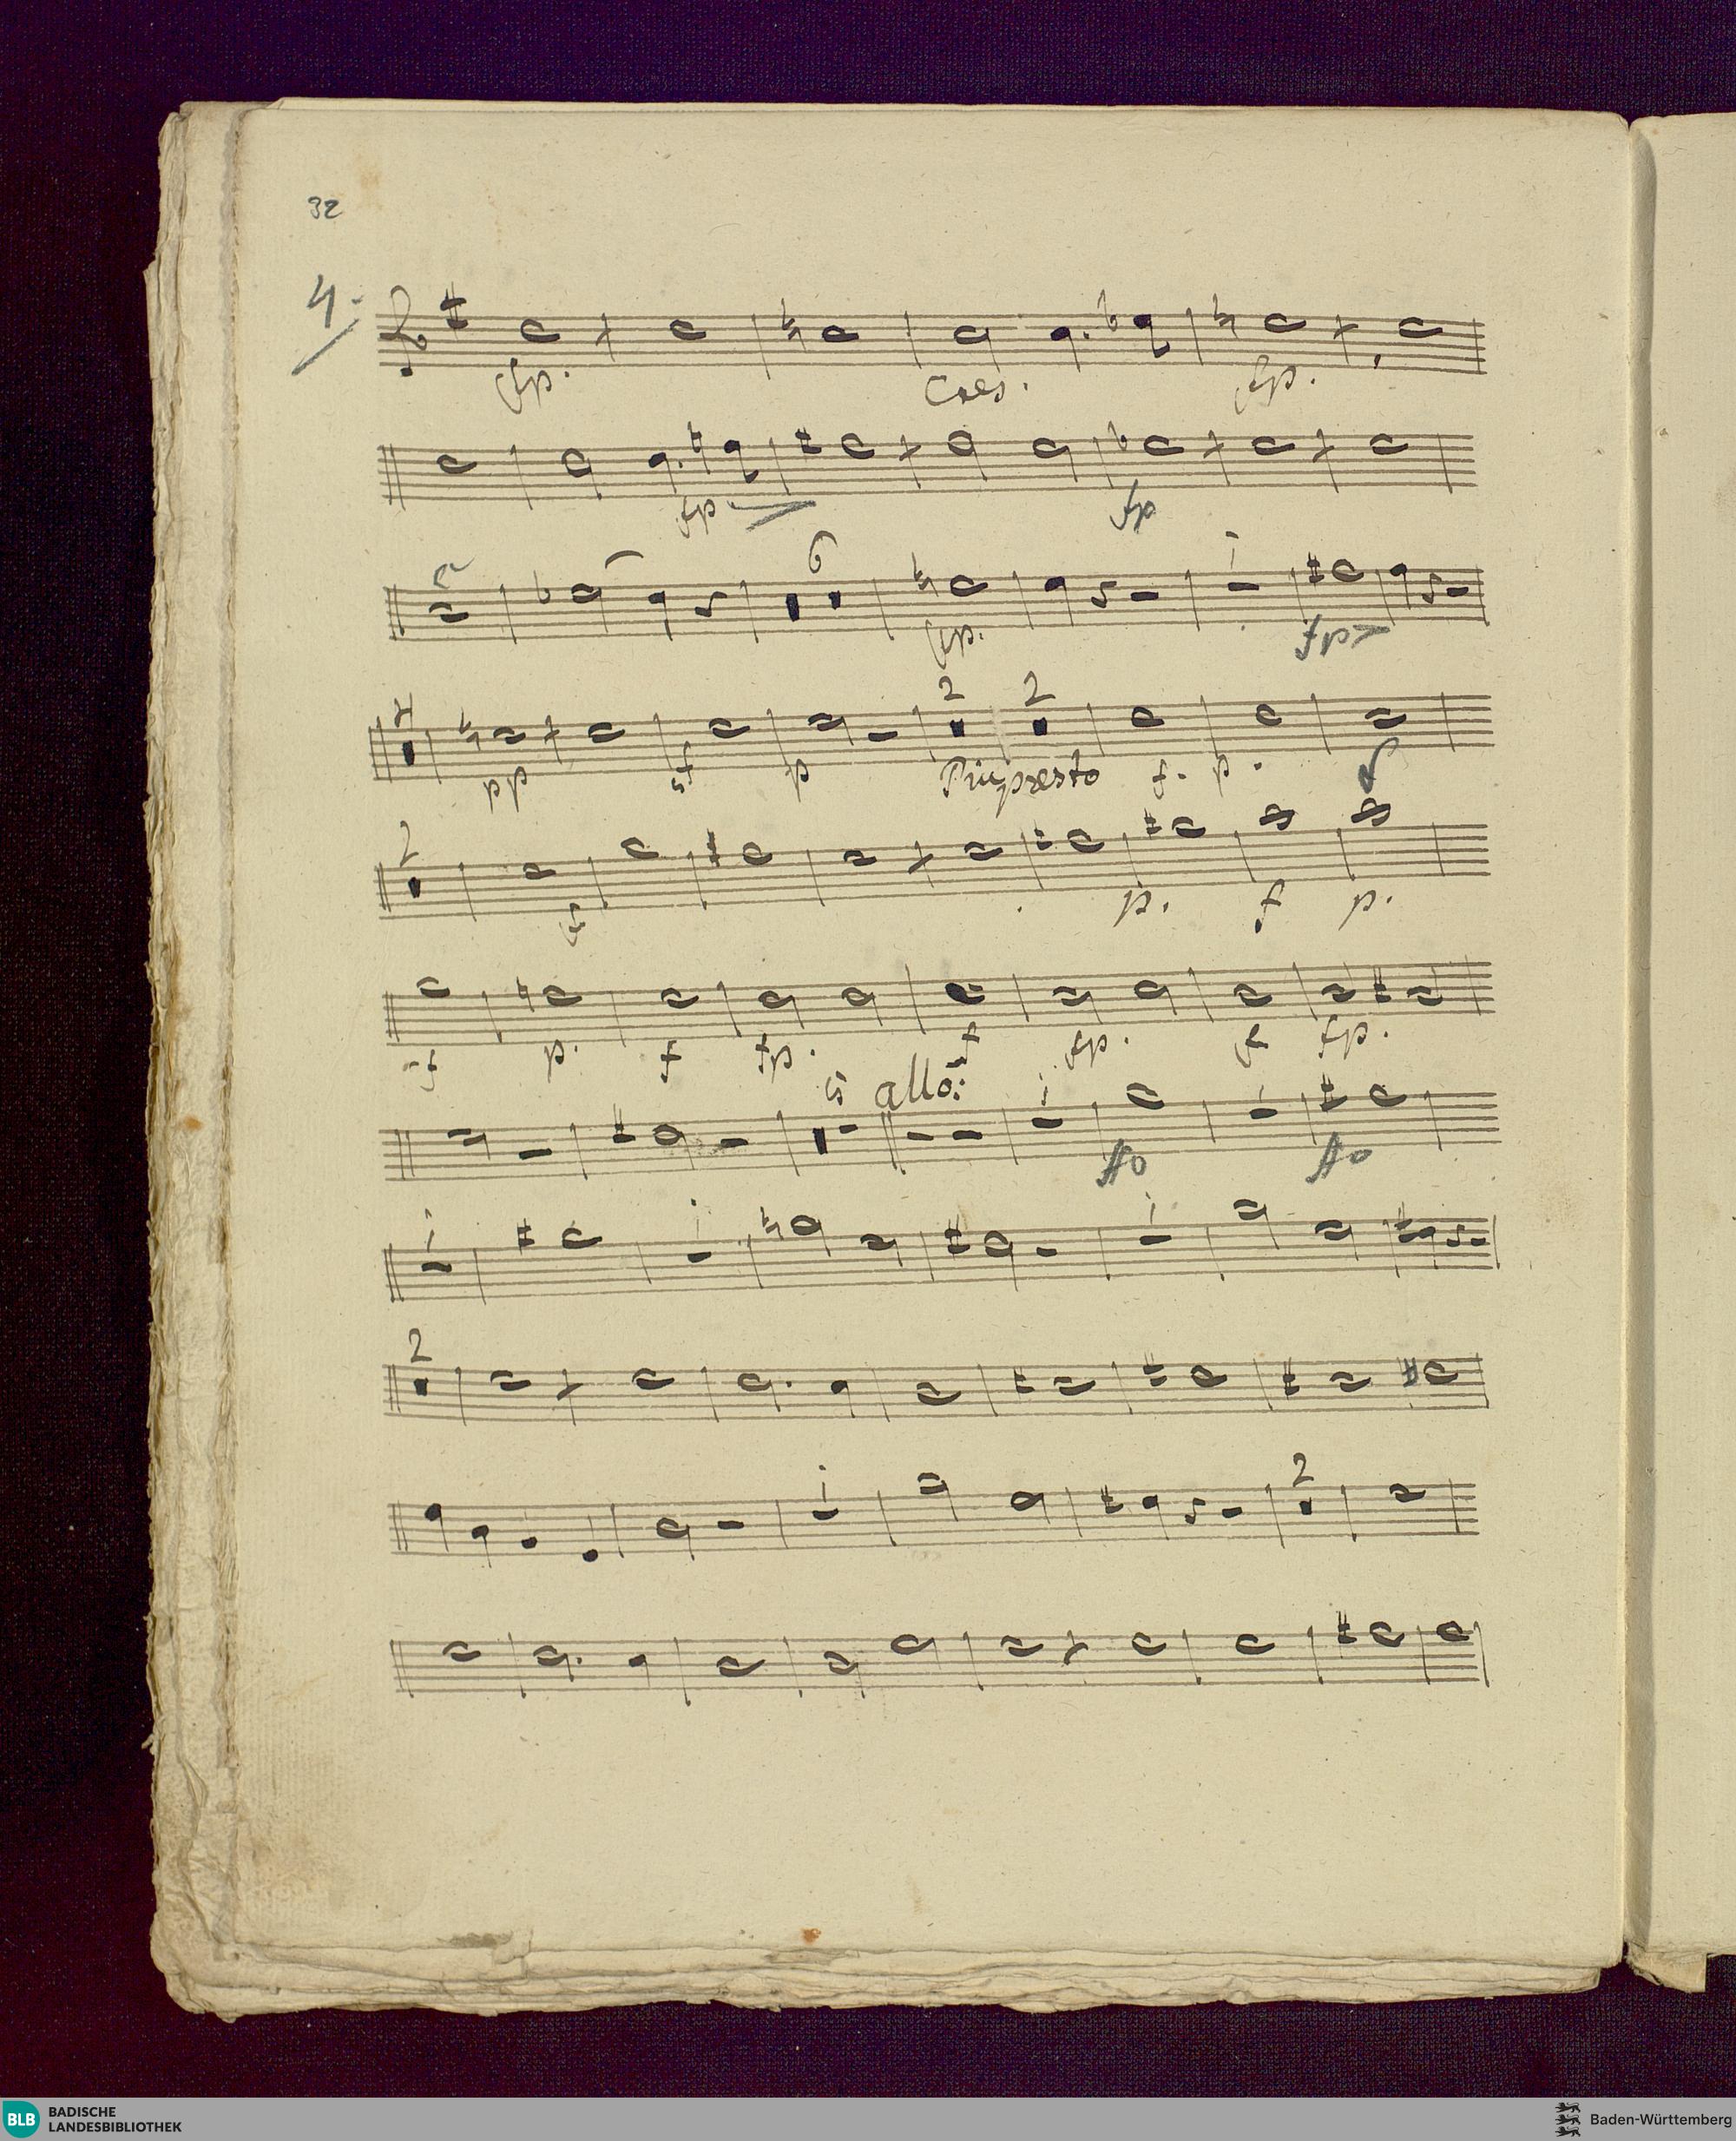 32
4.
fp. Cres. fp.
fp fp
6
fp. fp
2 2
pp f p Piupresto f. p. f
2
f p. f p.
f p. f fp. f fp. f fp.
5 allo:
ffo ffo
2
2
BLB BADISCHE LANDESBIBLIOTHEK
Baden-Württemberg